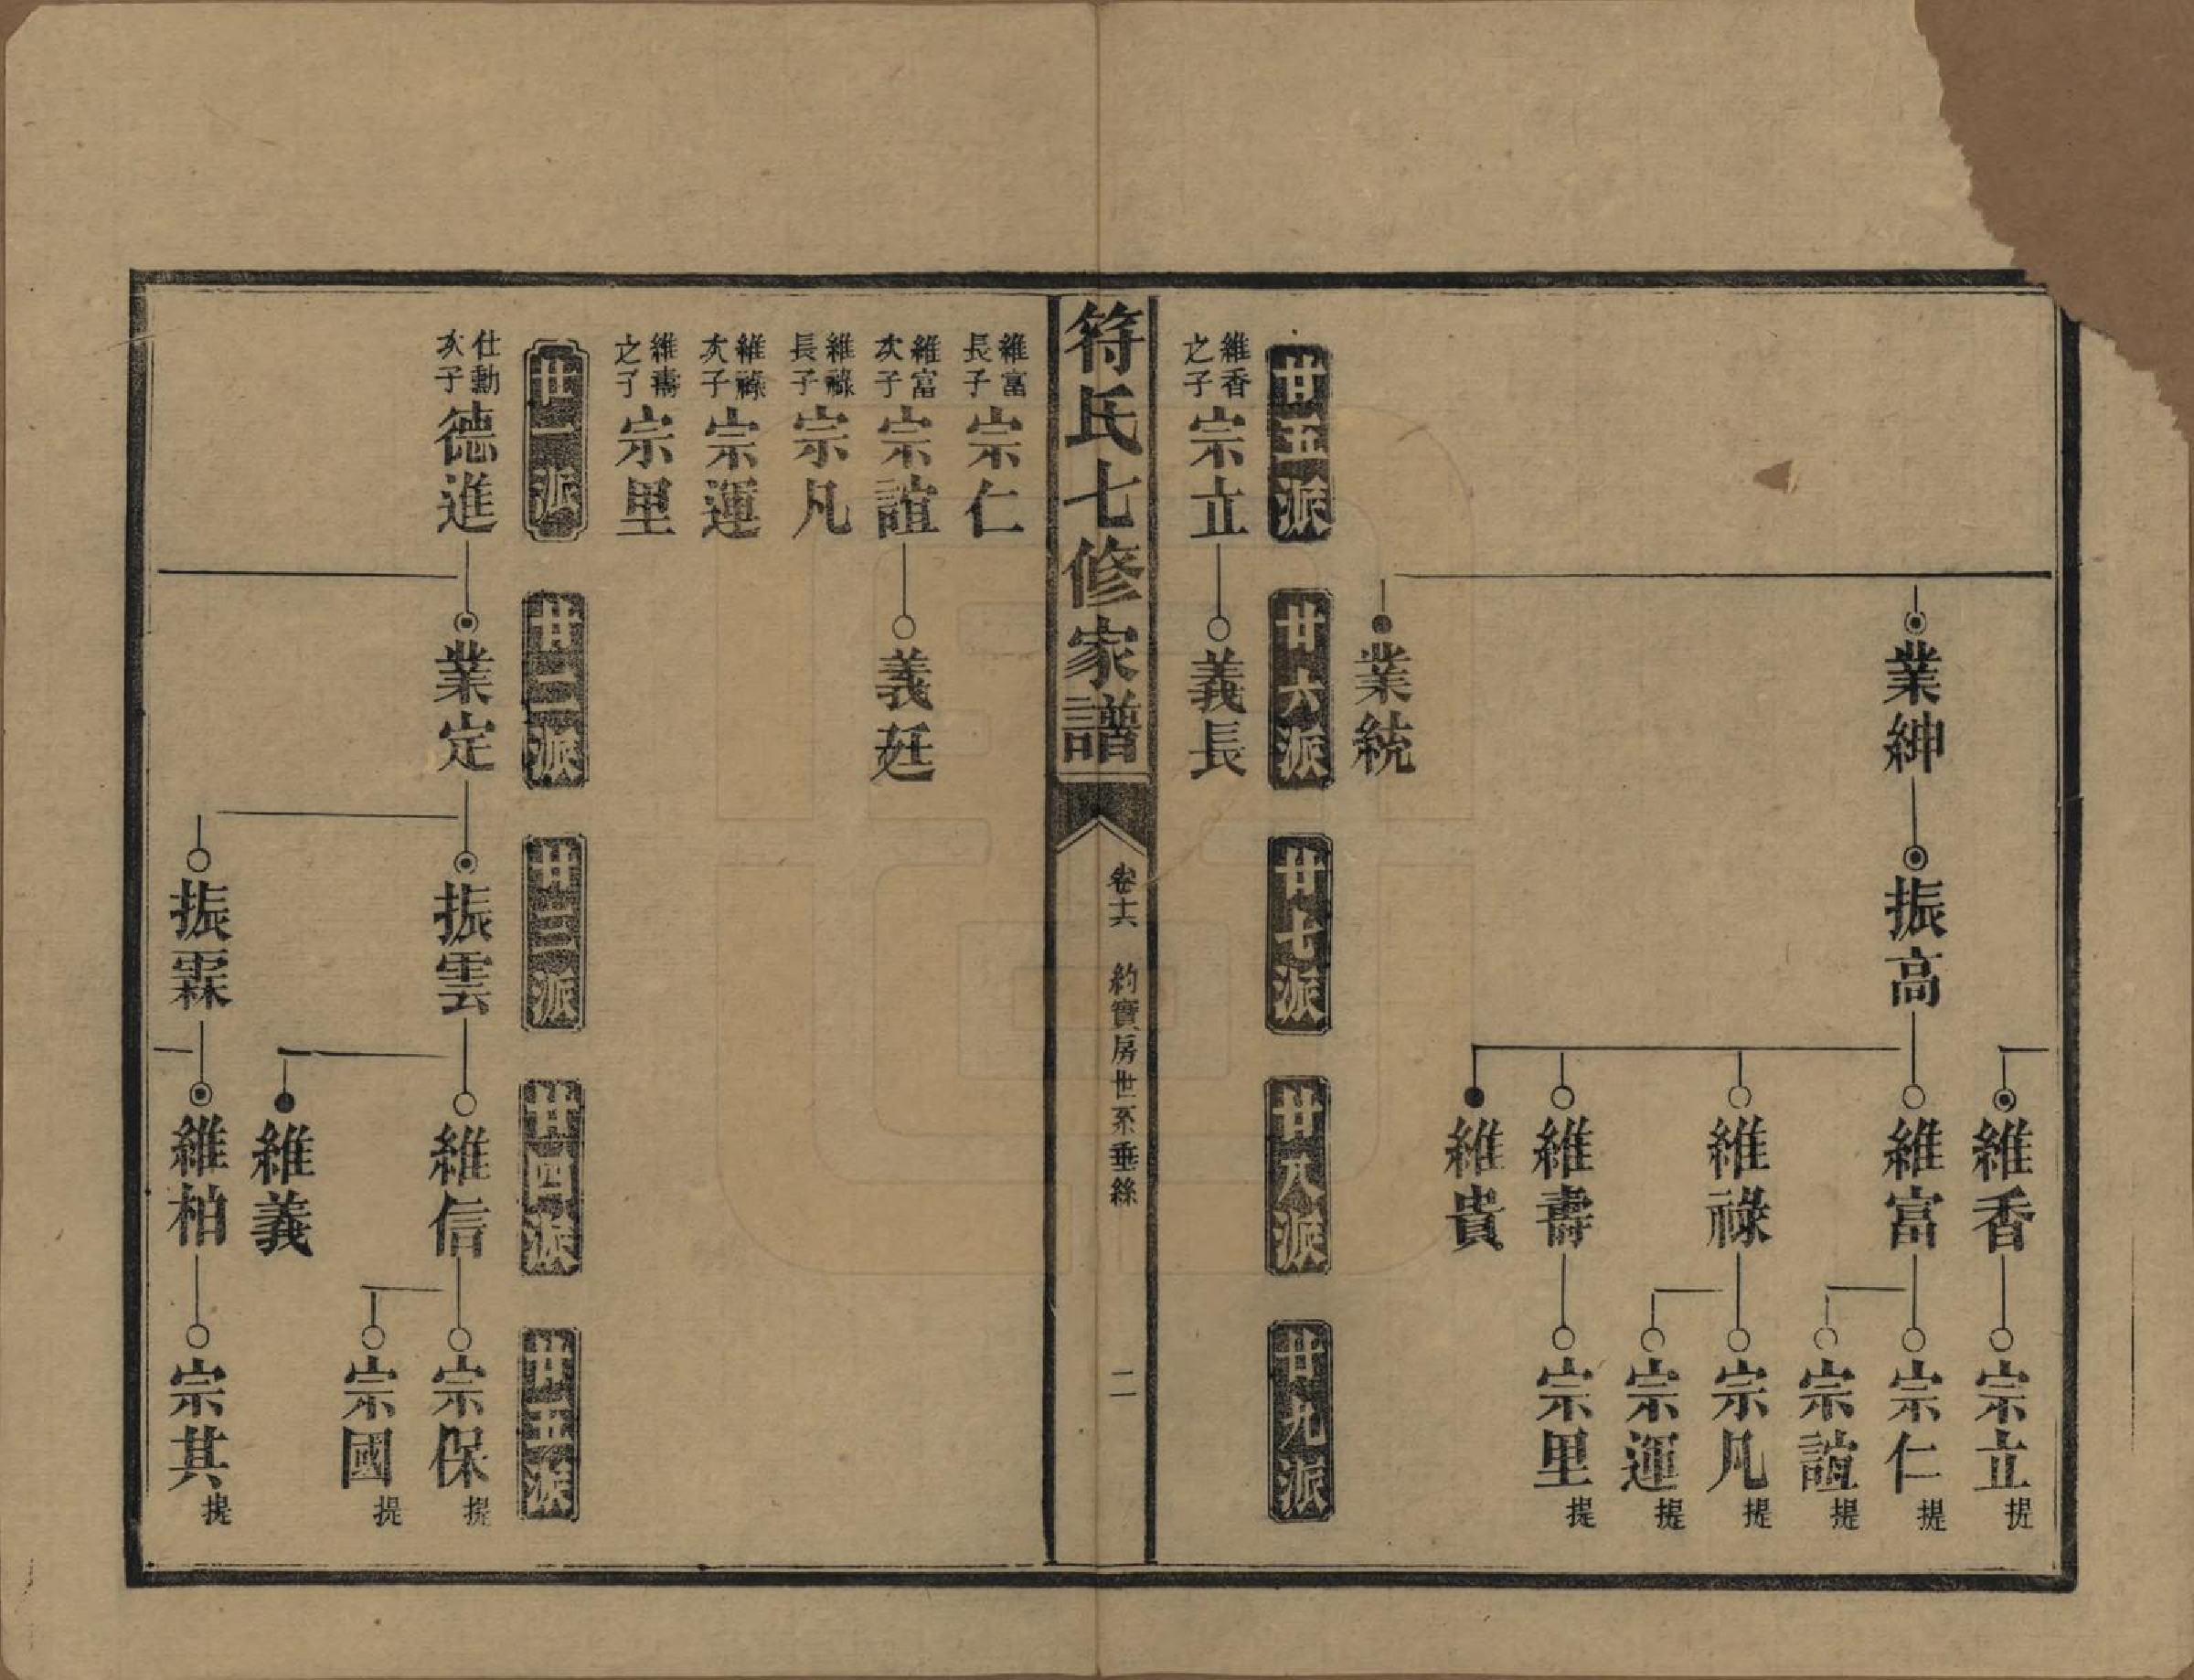 維香 宗立提
業紳 振高 維富 宗仁提
宗誼提
維祿 宗凡提
宗運提
維壽 宗里提
維貴
業統
廿五派 廿六派 廿七派 廿八派 廿九派
維香之子 宗立 義長
符氏七修家譜 卷十六 約實房世系垂絲 二
維富長子 宗仁
維富次子 宗誼 義廷
維祿長子 宗凡
維祿次子 宗運
維壽之子 宗里
廿一派 廿二派 廿三派 廿四派 廿五派
仕勳次子 德進 業定 振雲 維信 宗保提
宗國提
維義
振霖 維柏 宗其提